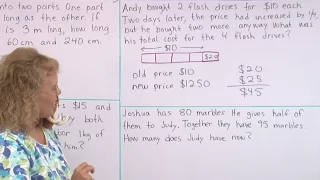 nto two parts. One part
long as the other. If
is 3 m long, how long
60 cm and 240 cm.
s $15 and
both
1kg of
him?
Andy bought 2 flash drives for $10 each.
Two days later, the price had increased by 1/4,
but he bought two more anyway. What was
his total cost for the 4 flash drives?
$10
$20
old price $10
new price $12.50
$20
$25
$45
Joshua has 80 marbles. He gives half of
them to Judy. Together they have 95 marbles.
How many does Judy have now?